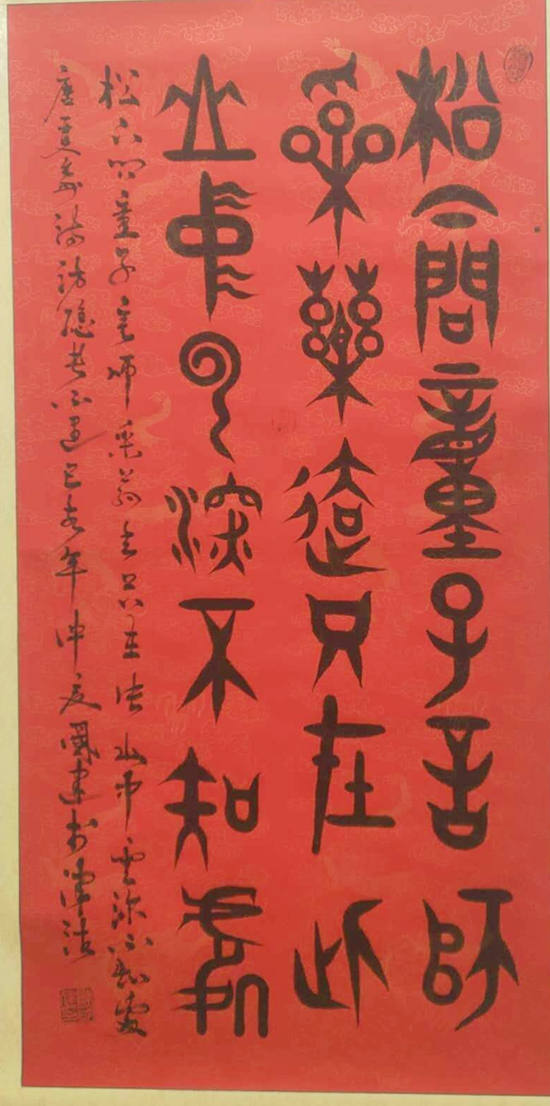 松下問童子言師
采藥去只在此
山中雲深不知處
松下问童子言師采药去只在此山中雲深不知處
唐賈島詩訪隱者不遇己亥年仲夏國建书